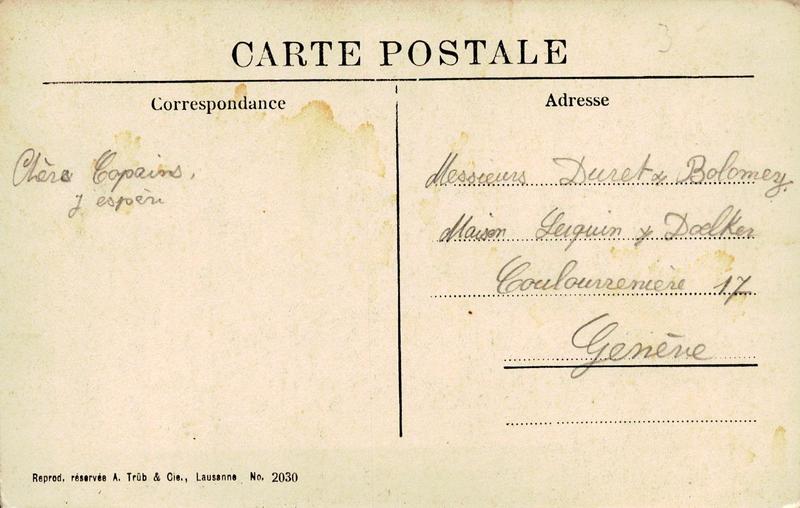 CARTE POSTALE
Correspondance
Adresse
Chèrs Copains,
J espère
Messieurs Duret & Bolomey.
Maison Serquin & Doelker
Coulouvrenière 17
Genève
Reprod. réservée A. Trüb & Cie., Lausanne No. 2030